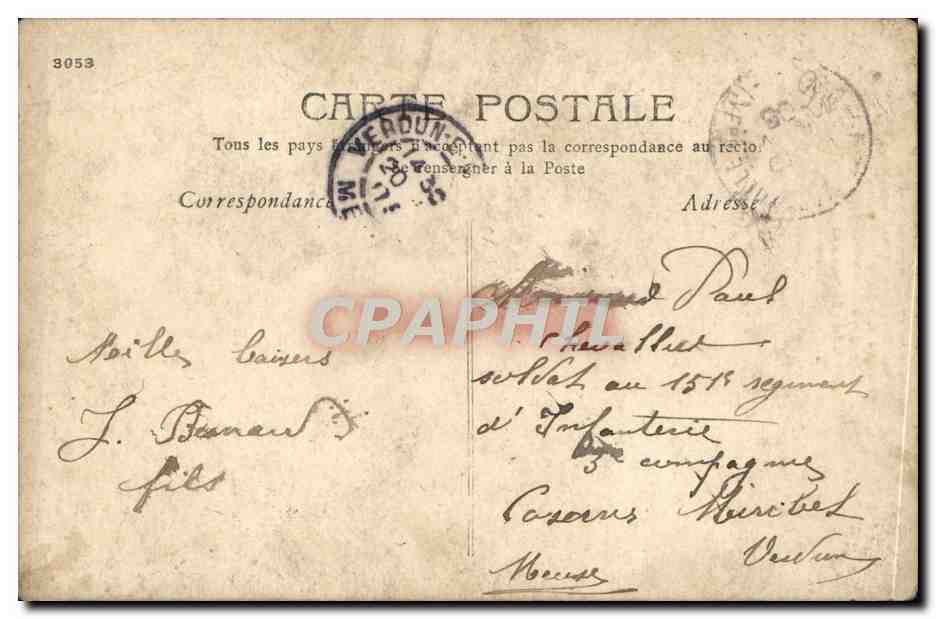 3053
CARTE POSTALE
Tous les pays étrangers n'acceptent pas la correspondance au recto.
Se renseigner à la Poste
VERDUN-S
20
ME
Correspondance
Adresse
Mille baisers
J. Bernard
fils
Paul
Chevallier
soldat au 151e regiment
d'Infanterie
3e compagnie
Caserne Miribel
Verdun
Meuse
CPAPHIL